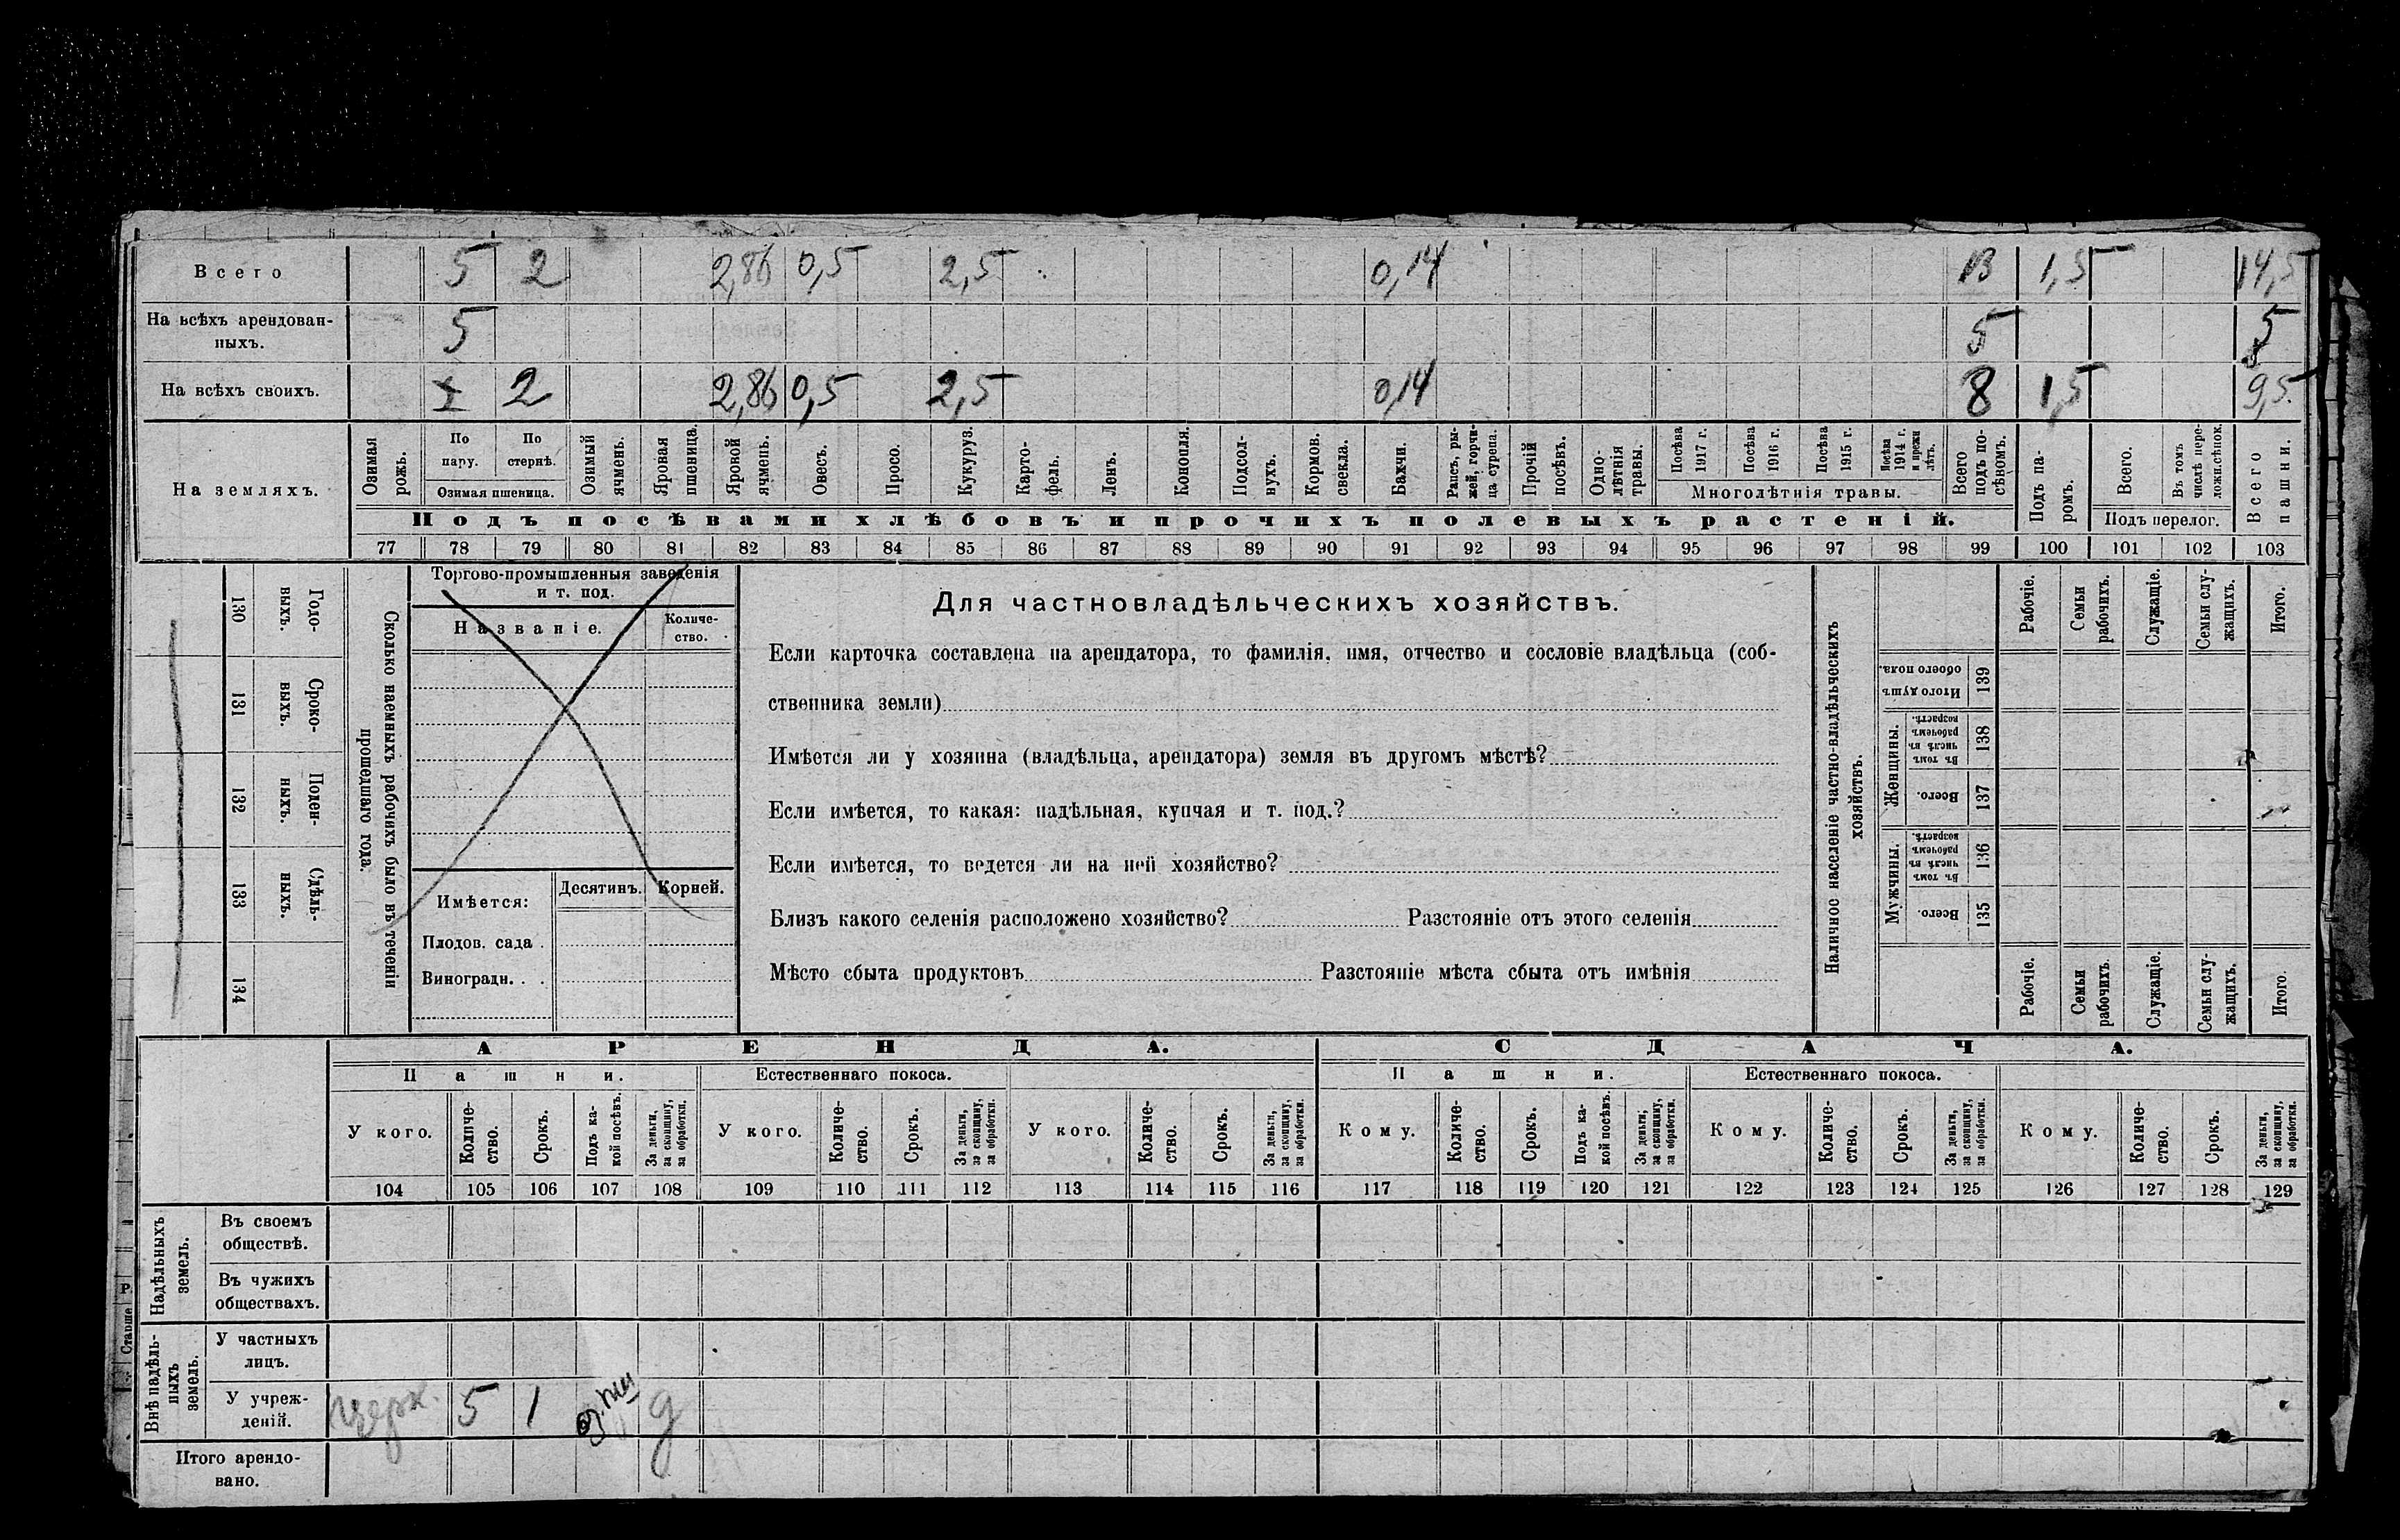 Всего 5 2 2,86 0,5 2,5 0,14 13 1,5 14,5
На всѣхъ арендован-
ныхъ. 5 5 5
На всѣхъ своихъ. 2 2,86 0,5 2,5 0,14 8 1,5 9,5
На земляхъ.
Озимая рожь.
По пару.
По стернѣ.
Озимая пшеница.
Озимый ячмень.
Яровая пшеница.
Яровой ячмень.
Овесъ.
Просо.
Кукуруз.
Карто-
фель.
Ленъ.
Конопля.
Подсол-
нухъ.
Кормов. свекла.
Бахчи.
Рапсъ, ры-
жей, горчи-
ца сурепа.
Прочій посѣвъ.
Одно-
лѣтнія травы.
Посѣва 1917 г.
Посѣва 1916 г.
Посѣва 1915 г.
Посѣва 1914 г. и прежн лѣтъ.
Многолѣтнія травы.
Всего подъ по-
сѣвомъ.
Подъ па-
ромъ.
Всего.
Въ томъ числѣ пере-
ложн.сѣнок.
Подъ перелог.
Всего пашни.
Подъ посѣвами хлѣбовъ и прочихъ полевыхъ растеній.
77 78 79 80 81 82 83 84 85 86 87 88 89 90 91 92 93 94 95 96 97 98 99 100 101 102 103
130 Годо-
выхъ.
131 Сроко-
выхъ.
132 Поден-
ныхъ.
133 Сдѣль-
ныхъ.
134
Сколько наемныхъ рабочихъ было въ теченіи
прошедшаго года.
Торгово-промышленныя заведенія
и т. под.
Названіе.
Количе-
ство.
Имѣется:
Десятинъ.
Корней.
Плодов. сада .
Виноградн. . .
Для частновладѣльческихъ хозяйствъ.
Если карточка составлена на арендатора, то фамилія, имя, отчество и сословіе владѣльца (соб-
ственника земли)
Имѣется ли у хозяина (владѣльца, арендатора) земля въ другомъ мѣстѣ?
Если имѣется, то какая: надѣльная, купчая и т. под.?
Если имѣется, то ведется ли на ней хозяйство?
Близъ какого селенія расположено хозяйство? Разстояніе отъ этого селенія
Мѣсто сбыта продуктовъ Разстояніе мѣста сбыта отъ имѣнія
Наличное населеніе частно-владѣльческихъ
хозяйствъ.
Рабочіе.
Семьи рабочихъ.
Служащіе.
Семьи слу-
жащихъ.
Итого.
Итого душъ обоего пола. 139
Женщины.
Въ томъ числѣ въ рабочемъ возрастѣ. 138
Всего. 137
Мужчины.
Въ томъ числѣ въ рабочемъ возрастѣ. 136
Всего. 135
Рабочіе.
Семьи рабочихъ.
Служащіе.
Семьи слу-
жащихъ.
Итого.
АРЕНДА. СДАЧА.
Пашни. Естественнаго покоса. Пашни. Естественнаго покоса.
У кого.
Количе-
ство.
Срокъ.
Подъ ка-
кой посѣвъ.
За деньги, за скопщину, за обработки.
У кого.
Количе-
ство.
Срокъ.
За деньги, за скопщину, за обработки.
У кого.
Количе-
ство.
Срокъ.
За деньги, за скопщину, за обработки.
Кому.
Количе-
ство.
Срокъ.
Подъ ка-
кой посѣвъ.
За деньги, за скопщину, за обработки.
Кому.
Количе-
ство.
Срокъ.
За деньги, за скопщину, за обработки.
Кому.
Количе-
ство.
Срокъ.
За деньги, за скопщину, за обработки.
104 105 106 107 108 109 110 111 112 113 114 115 116 117 118 119 120 121 122 123 124 125 126 127 128 129
Надѣльныхъ земель.
Въ своемъ
обществѣ.
Въ чужихъ
обществахъ.
Внѣ надѣль-
ныхъ земель.
У частныхъ
лицъ.
У учреж-
деній. Церк. 5 1 д
Итого арендо-
вано.
Старше
Р.